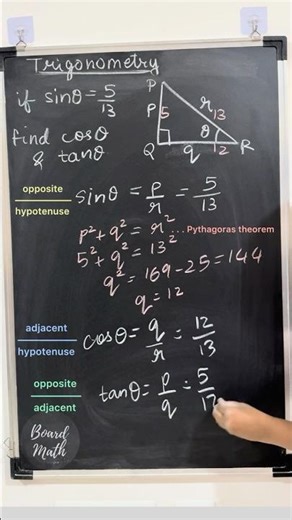 Trigonometry
if sinθ = 5/13
find cosθ
& tanθ
P
p 5
r 13
θ
Q
q 12
R
opposite
hypotenuse
sinθ = p/r = 5/13
p² + q² = r² ... Pythagoras theorem
5² + q² = 13²
q² = 169 - 25 = 144
q = 12
adjacent
hypotenuse
cosθ = q/r = 12/13
opposite
adjacent
tanθ = p/q = 5/12
Board
Math